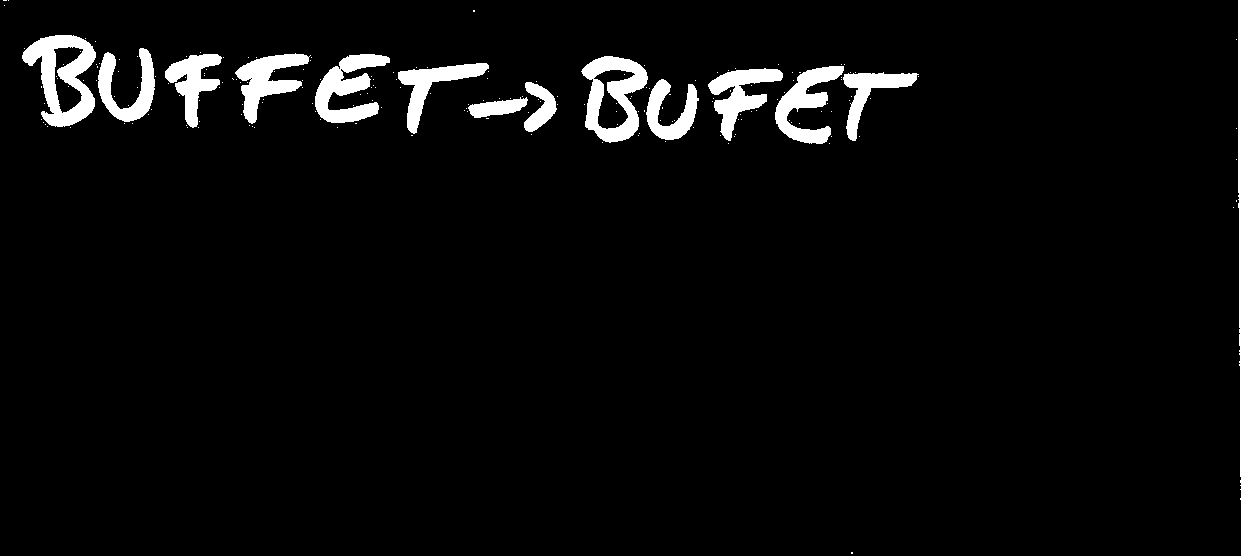 BUFFET → BUFET